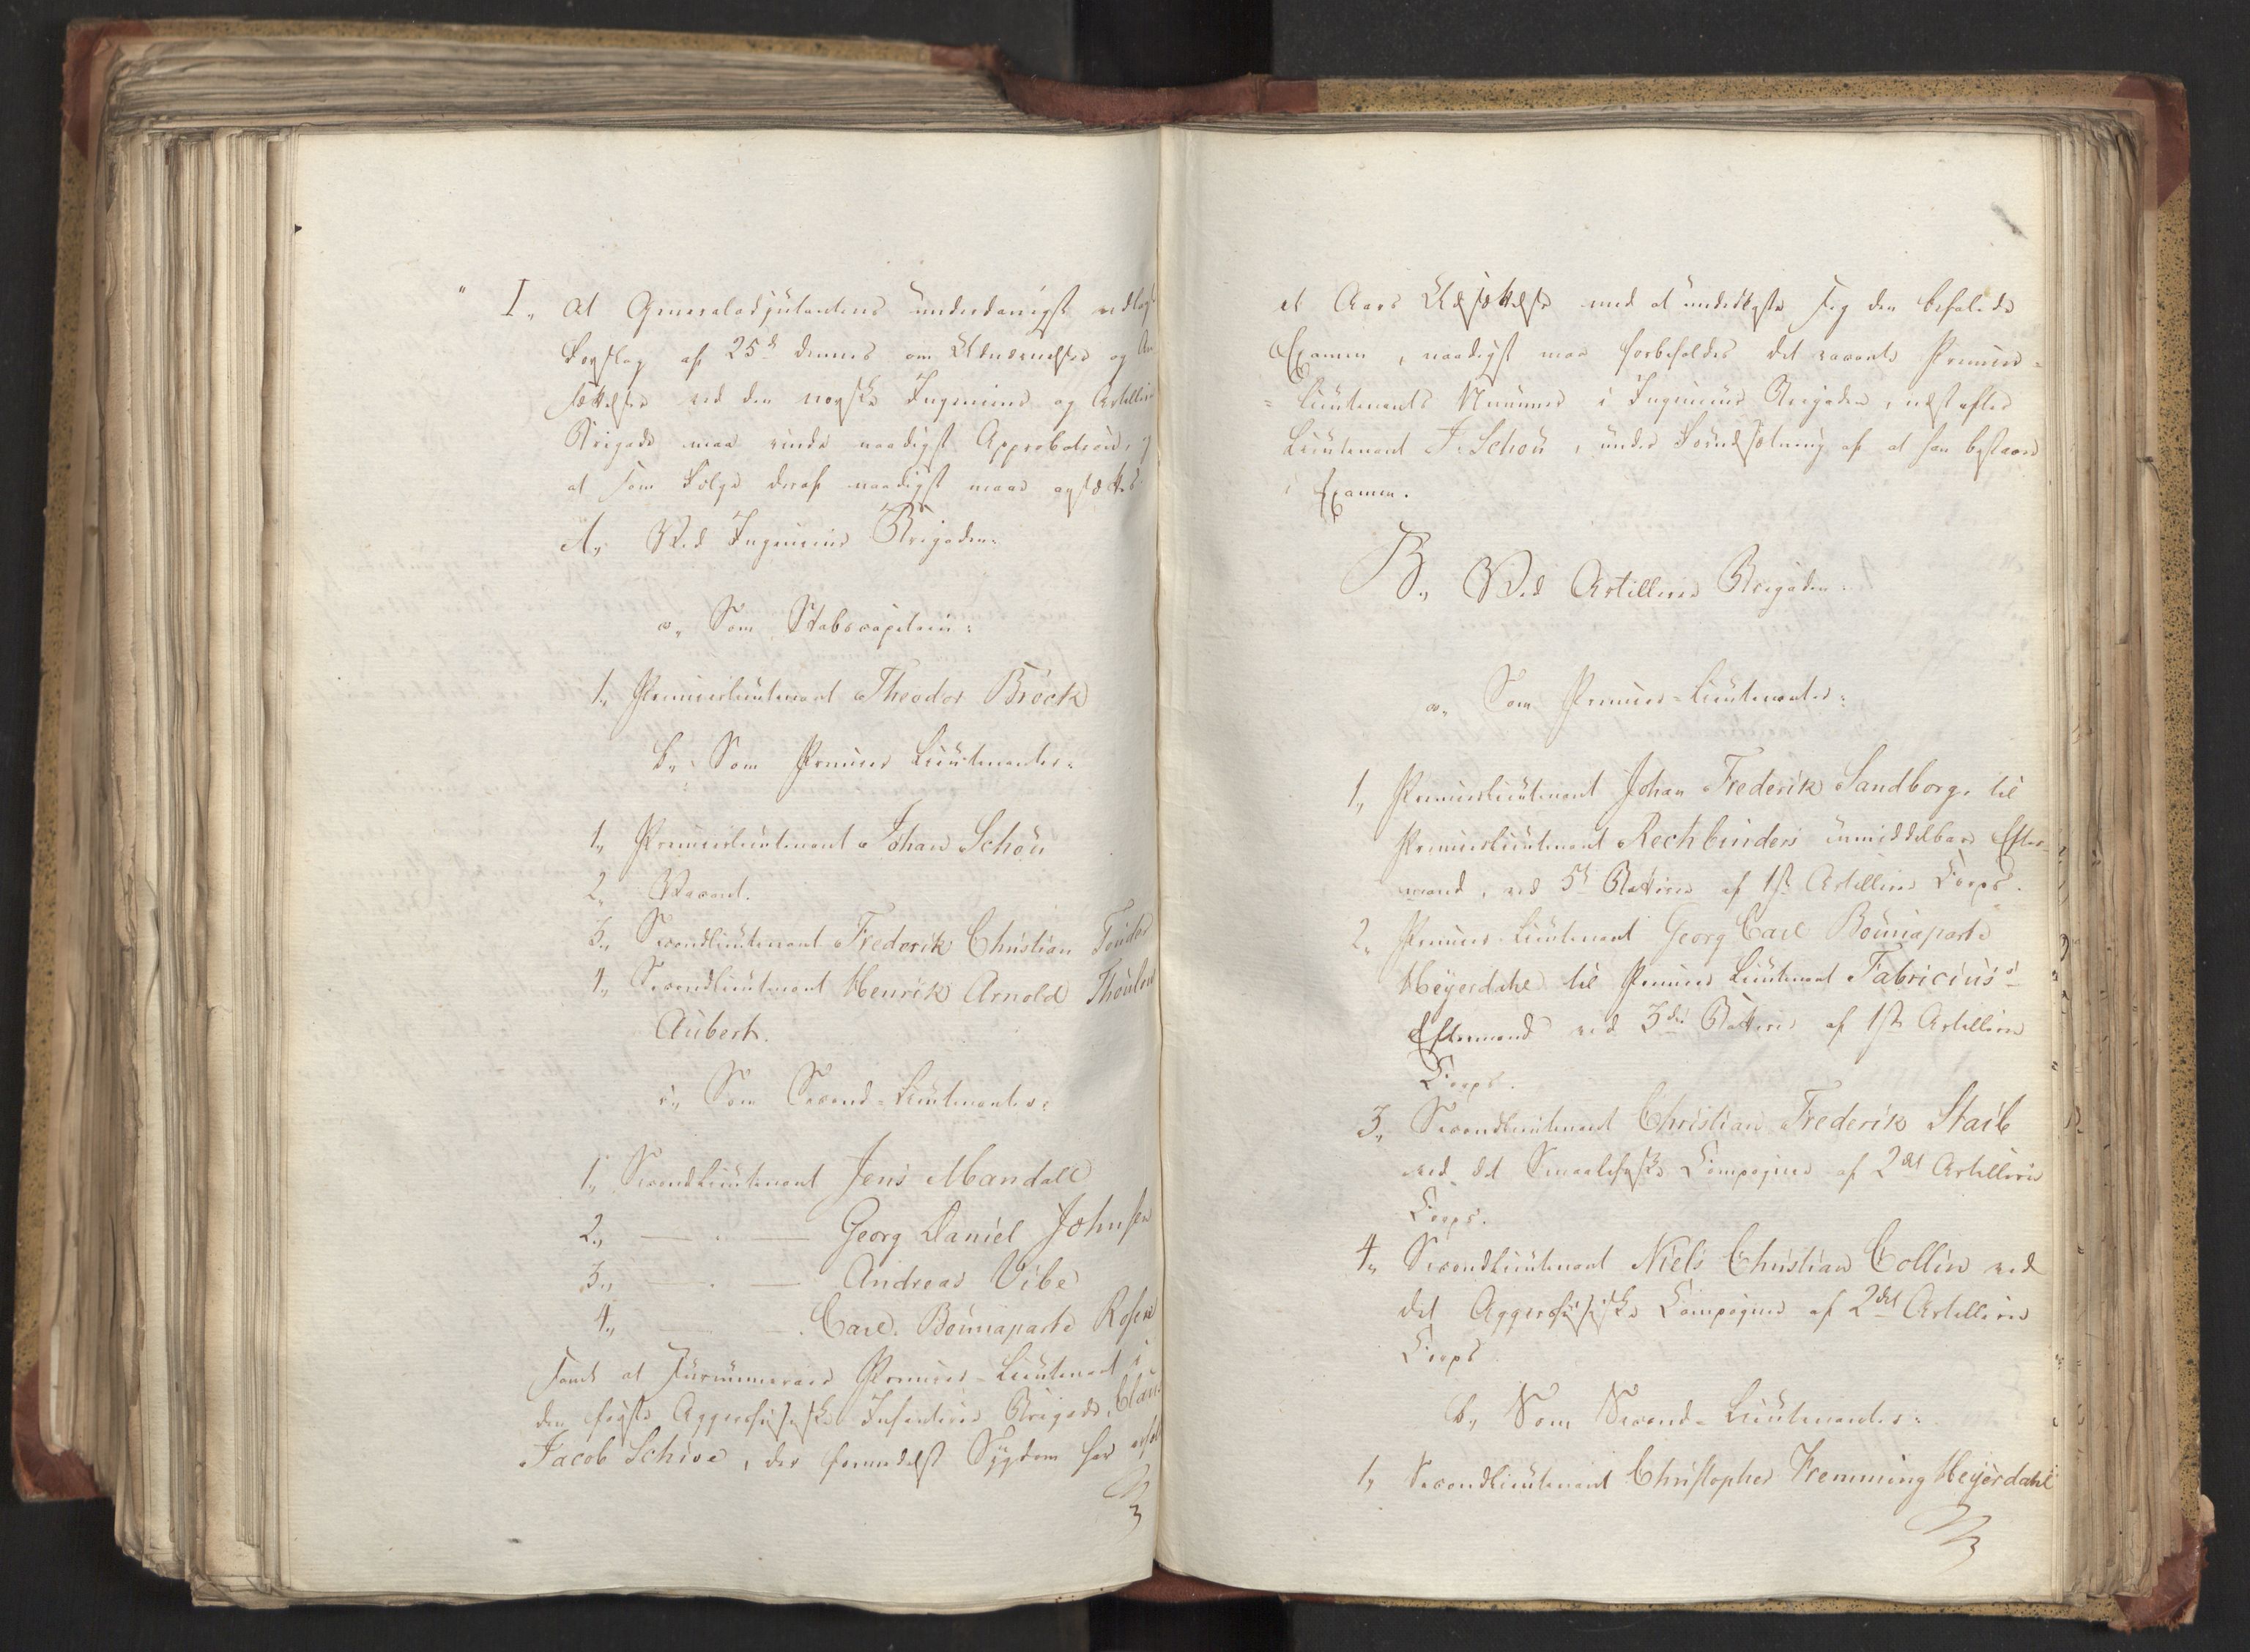 " I,, At Generaladjutantens underdanigst nedlagte
Forslag af 25de dennes om Udnævnelser og An
sættelser ved den norske Ingenieur og Artillerie
Brigade maa vinde naadigst Approbation, og
at som Følge deraf naadigst maae ansættes
A,, Ved Ingenieur Brigaden.
a,, Som Stabscapitain:
1,, Premierlieutenant Theodor Broch
b,, Som Premier Lieutenanter:
1,, Premierlieutenant Johan Schou
2,, Vacant.
3,, Secondlieutenant Frederik Christian
4,, Secondlieutenant Henrik Arnold Thaulow
Aubert.
c,, Som Second-Lieutenanter:
1,, Secondlieutenant Jens Mandall
2,, — . — Georg Daniel Johnsen
3,, — . — Andreas Vibe
4,, — — . Carl Bonnaparte Rosen
samt at Surnumerair Premier-Lieutenant i
den første Aggershusiske Infanterie Brigade,
Jacob Schive, der formedelst Sygdom har
et Aars Udsættelse med at underkaste sig den befalede
Examen, naadigst maa forbeholdes det vacante Premier-
-Lieutenants Nummer i Ingenieur Brigaden, næst efter
Lieutenant J. Schou, under Forudsætning af at han bestaaer
i Examen.
B,, Ved Artillerie Brigaden:
a,, Som Premier-Lieutenanter:
1,, Premierlieutenant Johan Frederik Sandborg, til
Premierlieutenant Rechbinders umiddelbare Efter-
mand, ved 5te Batterie af 1ste Artillerie Corps.
2,, Premier-Lieutenant Georg Carl Bonnaparte
Meyerdahl til Premier Lieutenant Fabricius's
Eftermand ved 3die Batterie af 1ste Artillerie
Corps.
3,, Secondlieutenant Christian Frederik Staib
ved det Smaalehnske Compagnie af 2det Artillerie
Corps.
4,, Secondlieutenant Niels Christian Collin ved
det Aggershusiske Compagnie af 2det Artillerie
Corps
b,, Som Second-Lieutenanter:
1,, Secondlieutenant Christopher Fremming Heyerdahl